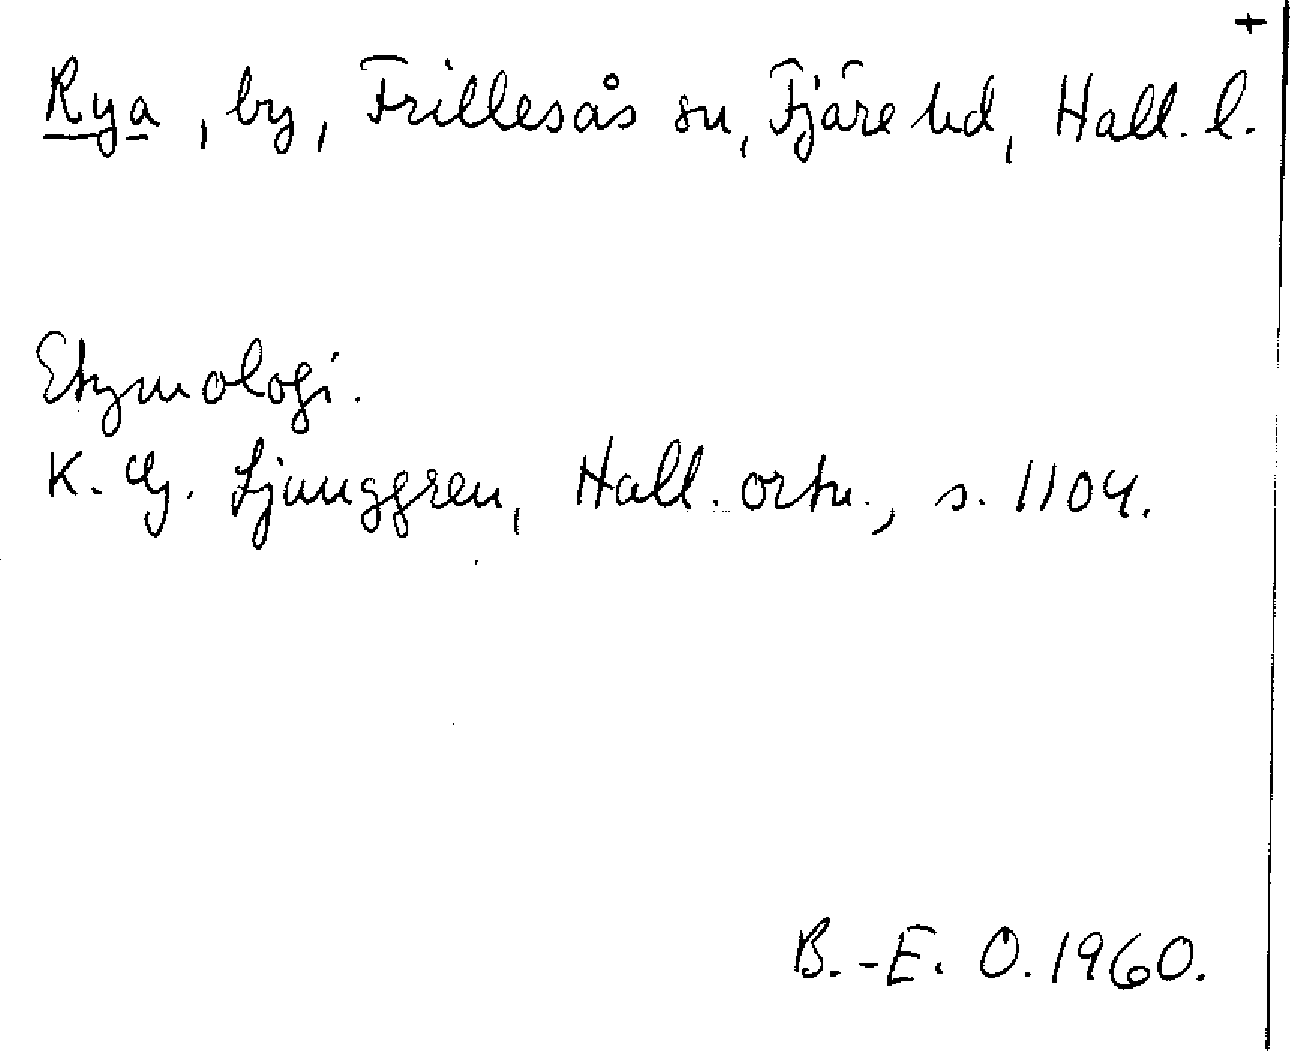 +
Rya, by, Frillesås sn, Fjäre hd, Hall. l.
Etymologi.
K. G. Ljunggren, Hall. ortn., s. 1104.
B.-E. O. 1960.